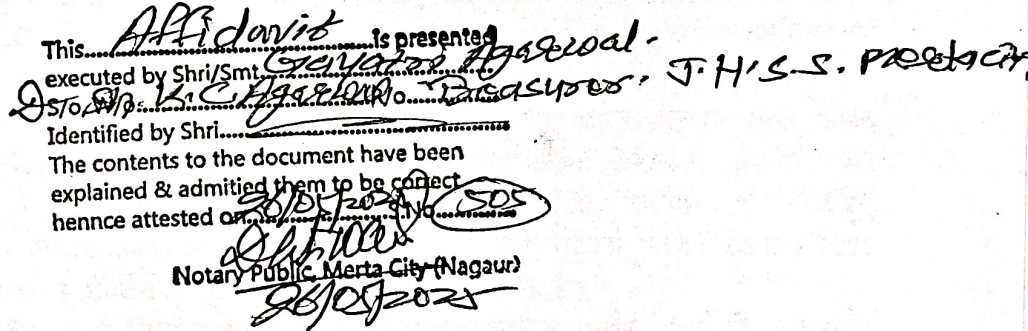 This Affidavit is presented
executed by Shri/Smt. Gayatri Agarwal.
D S/o, W/o K.C. Agarwal R/o Treasurer. J.H.S.S. Merta City
Identified by Shri
The contents to the document have been
explained & admitied them to be correct
hennce attested on 26/05/2025 No 505
Notary Public, Merta City (Nagaur)
26/05/2025